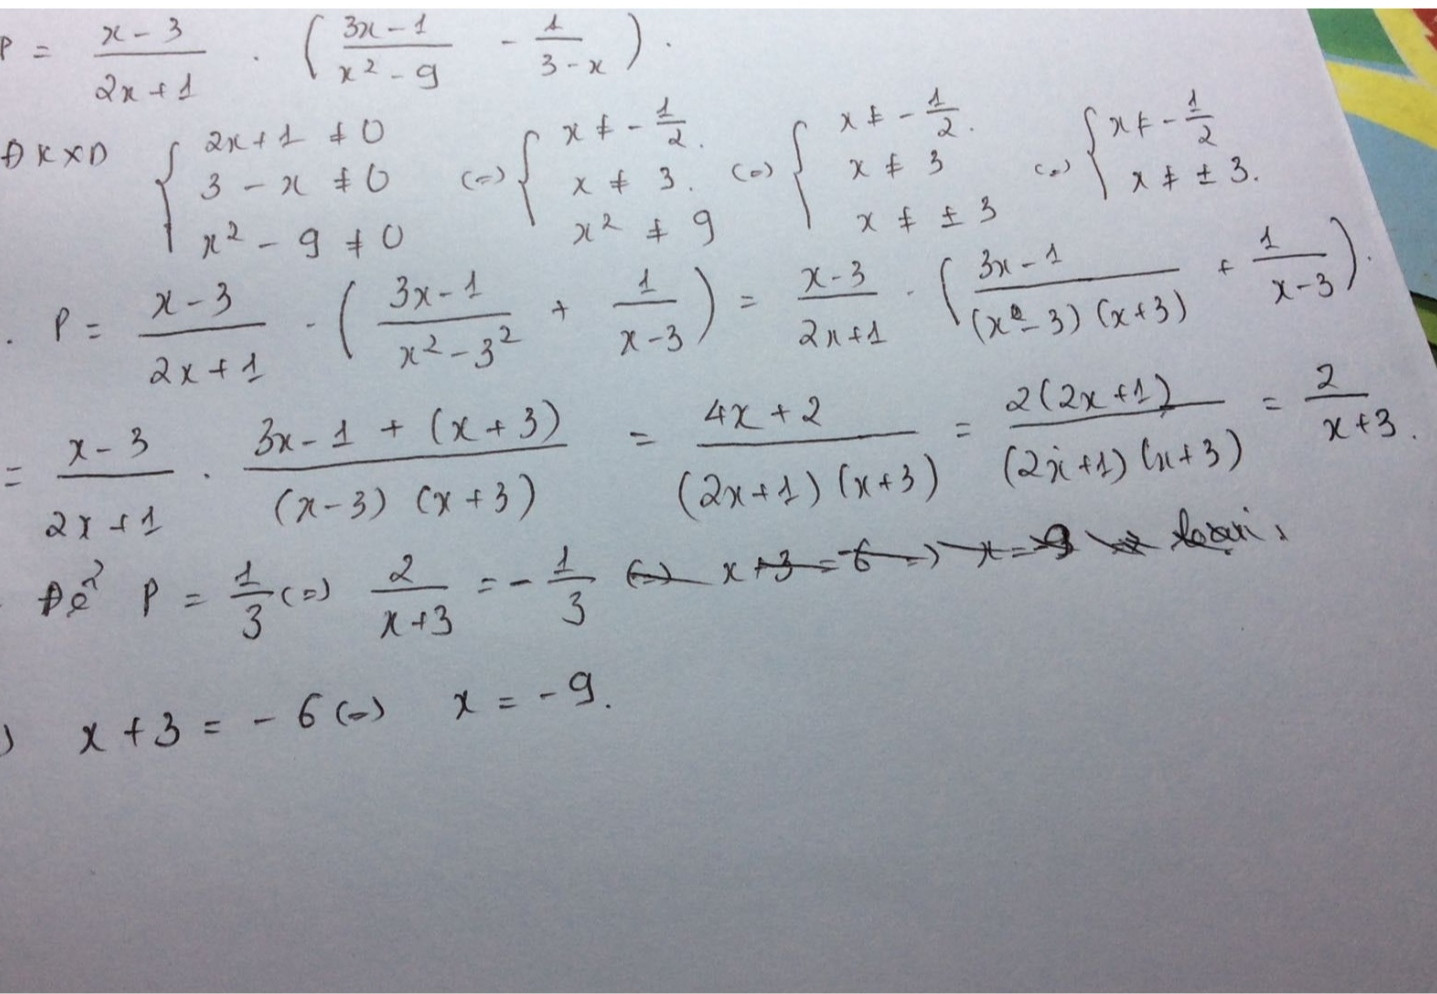 P = \frac{x-3}{2x+1} . ( \frac{3x-1}{x^2-9} - \frac{1}{3-x} ) .
ĐKXD { 2x+1 ≠ 0 ; 3 - x ≠ 0 ; x^2 - 9 ≠ 0 (=) { x ≠ -\frac{1}{2}. ; x ≠ 3. ; x^2 ≠ 9 (=) { x ≠ -\frac{1}{2}. ; x ≠ 3 ; x ≠ ± 3 (=) { x ≠ -\frac{1}{2} ; x ≠ ± 3.
. P = \frac{x-3}{2x+1} . ( \frac{3x-1}{x^2-3^2} + \frac{1}{x-3} ) = \frac{x-3}{2x+1} . ( \frac{3x-1}{(x-3)(x+3)} + \frac{1}{x-3} ).
= \frac{x-3}{2x+1} . \frac{3x-1+(x+3)}{(x-3)(x+3)} = \frac{4x+2}{(2x+1)(x+3)} = \frac{2(2x+1)}{(2x+1)(x+3)} = \frac{2}{x+3}.
Để P = \frac{1}{3} (=) \frac{2}{x+3} = -\frac{1}{3}
) x+3 = -6 (=) x = -9.